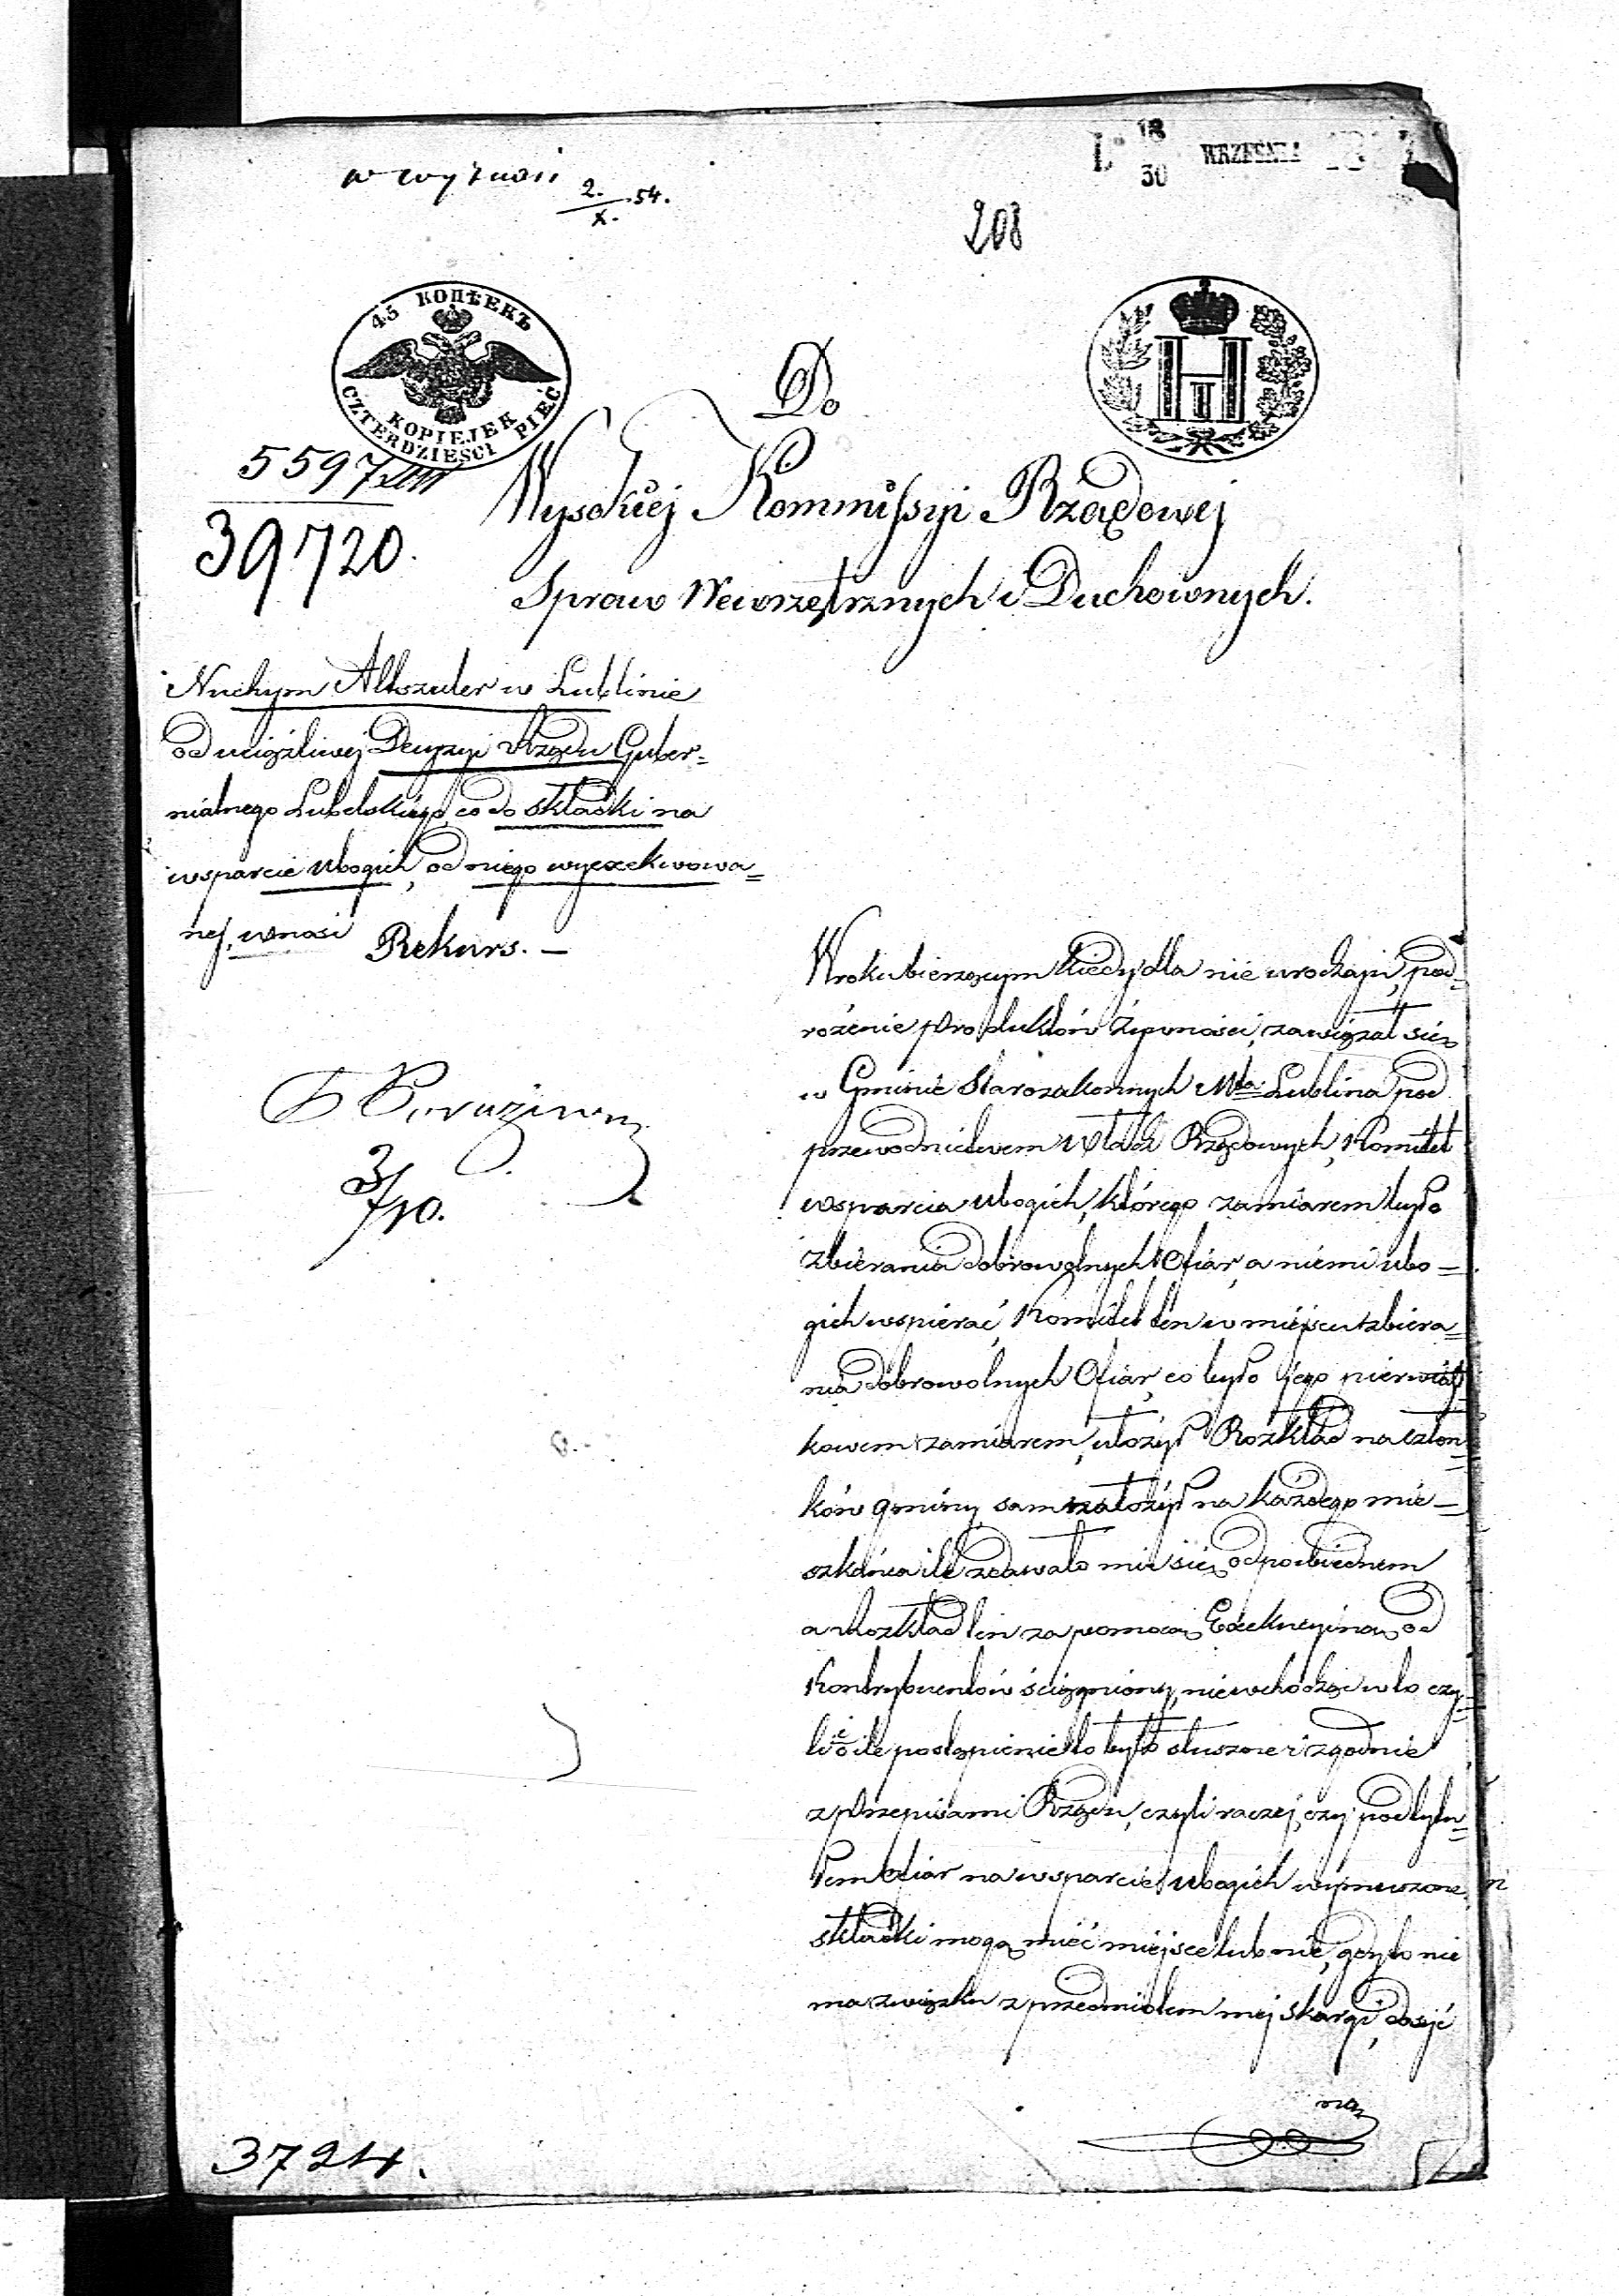 18
30
WRZEŚNIA
2.
X. 54.
208
45 КОПѢЕКЪ
KOPIEJEK
CZTERDZIEŚCI PIĘĆ
Do
5597
39720.
Wysokiéj Kommissyi Rządowej
Spraw Wewnętrznych i Duchownych.
Nuchym Altszuler w Lublinie
od uciążliwej Decyzyi Rządu Guber=
nialnego Lubelskiego, co do składki na
wsparcie ubogich, od niego wyexekwowa=
nej, wnosi Rekurs. —
W roku bieżącym kiedy dla nie urodzajú, pod=
rożenie produktów żywności, zawiązał się
w Gminie Starozakonnych Mta Lublina pod
przewodnictwem Władz Rządowych, Komitet
wsparcia ubogich, którego zamiarem było
zbierania dobrowolnych Ofiar, a niemi ubo—
gich wspierać, Komitet ten w miejscu zbiera=
nia dobrowolnych Ofiar, co było jego pierwiast=
kowem zamiarem, ułożył Rozkład na człon=
ków gminy, sam nałożył na każdego mie—
szkańca ile zdawało mu się odpowiednem
a Rozkład ten za pomocą Exekucyiną od
Kontrybuentów ściągniony, niewchodząc w to czy=
li i o ile postąpienie to było słuszne i zgodnie
z przepisami Rządu, czyli raczej, czy pod tytu=
łem Ofiar na wsparcie ubogich wymuszone
składki mogą mieć miejsce lub nie, gdy to nie
ma związku z przedmiotem mej skargi, dosyć
na
3/10.
3724.